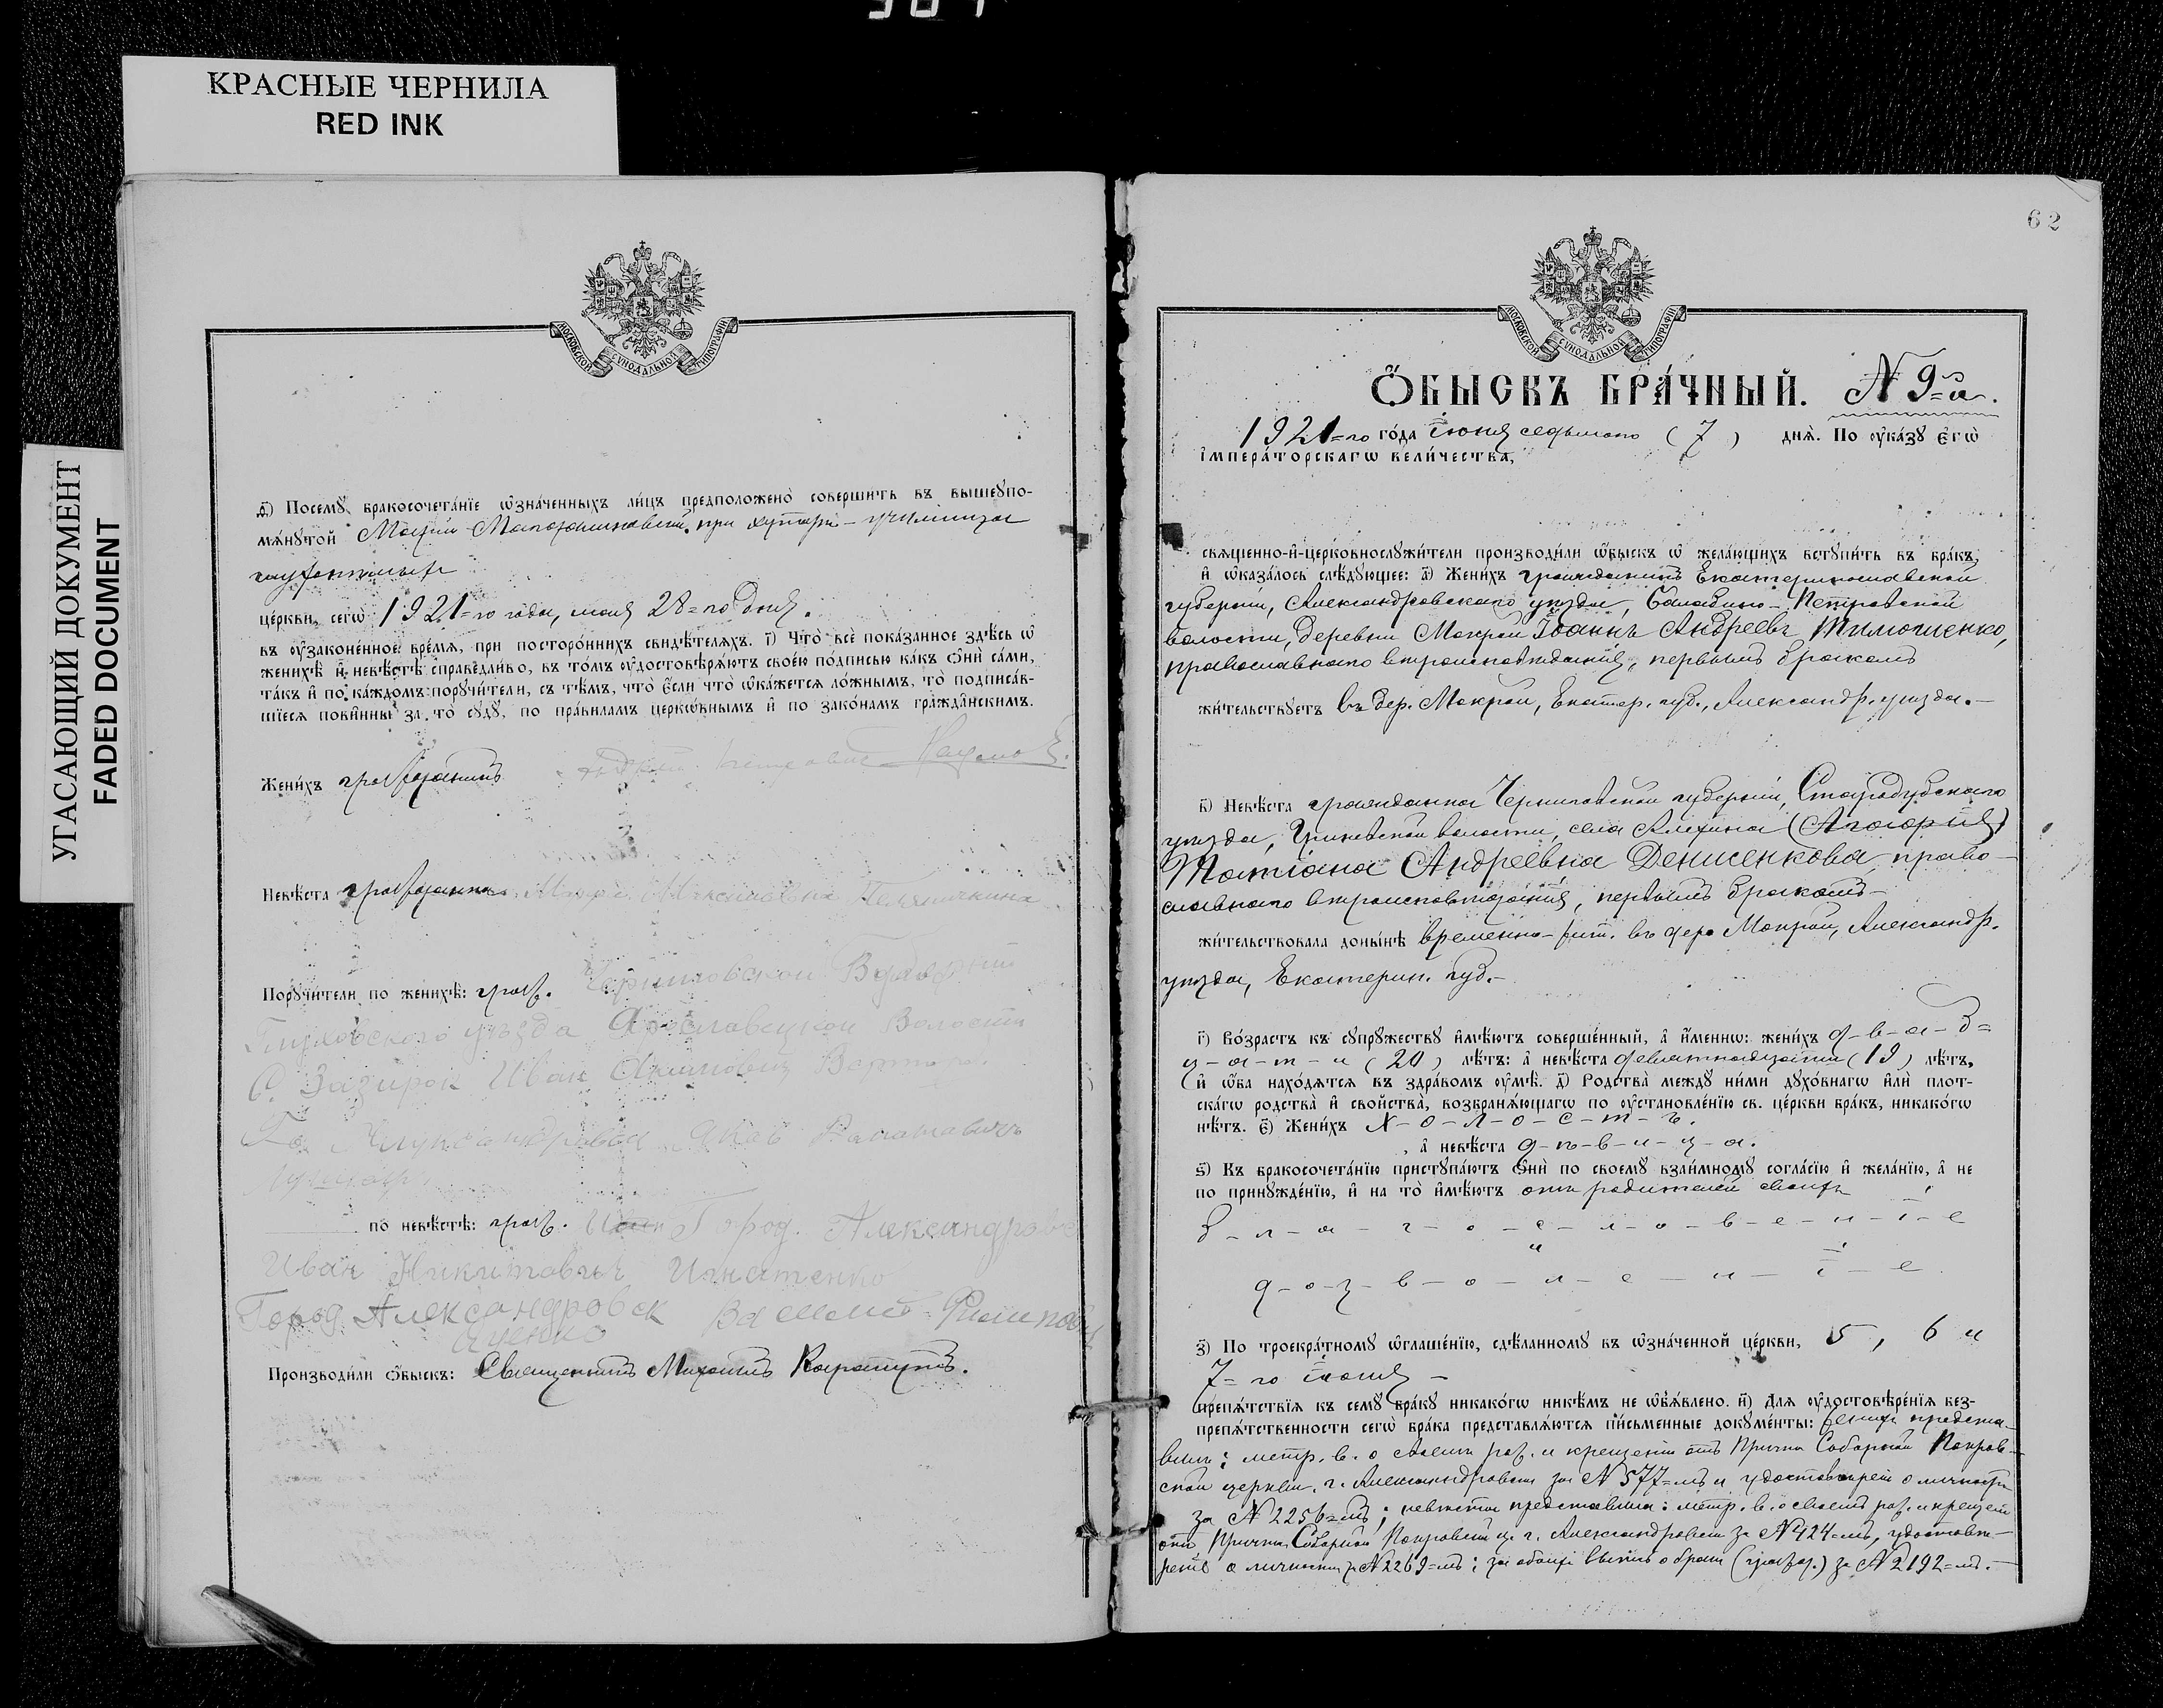 КРАСНЫЕ ЧЕРНИЛА
RED INK
УГАСАЮЩИЙ ДОКУМЕНТ
FADED DOCUMENT
МОСКОВСКОЙ СѴНОДАЛЬНОЙ ТИПОГРАФІИ
Посемꙋ̀ бракосочета́нїе ѡ҆зна́ченныхъ ли́цъ предположено̀ соверши́ть въ вышеꙋпо-
мѧ́нꙋтой Маріи-Магдалиновской при хуторѣ-училищѣ
це́ркви, сегѡ̀ 1921=го года, мая 28=го дня.
въ ᲂу҆зако́ненное вре́мя, при посторо́ннихъ свидѣ́теляхъ. і҃) Что̀ всѐ пока́занное здѣ́сь ѡ҆
женихѣ̀ и҆ невѣ́стѣ справедли́во, въ то́мъ ᲂу҆достовѣря́ютъ свое́ю по́дписью ка́къ ѻ҆нѝ са́ми,
та́къ и҆ по ка́ждомъ порꙋчи́тели, съ тѣ́мъ, что̀ є҆́сли что̀ ѡ҆ка́жется ло́жнымъ, то̀ подписа́в-
шїеся пови́нны за то̀ сꙋдꙋ̀, по пра́виламъ церко́внымъ и҆ по зако́намъ гражда́нскимъ.
Жени́хъ гражданинъ
Невѣ́ста гражданка Максимовна
Порꙋчи́тели по женихѣ̀: граж. Черниговской Губерніи
Глуховского уезда Волости
С. Иван
по невѣ́стѣ: граж. Город. Александровс
Иван Никитович Игнатенко
Город Александровск Филипови
Яценко
Производи́ли ѻ҆́быскъ: Священникъ Михаилъ Карапутъ.
62
МОСКОВСКОЙ СѴНОДАЛЬНОЙ ТИПОГРАФІИ
Ѻ҆́БЫСКЪ БРА́ЧНЫЙ. N 9=й.
1921=го го́да іюня седьмого ( 7 ) дня̀. По ᲂу҆ка́зꙋ є҆гѡ̀
і҆мпера́торскагѡ вели́чества,
свяще́нно-и҆-церковнослꙋжи́тели производи́ли ѻ҆́быскъ ѡ҆ жела́ющихъ встꙋпи́ть въ бра́къ,
и҆ ѡ҆каза́лось слѣ́дꙋющее: а҃) Жени́хъ гражданинъ Екатеринославской
губерніи, Александровскаго уѣзда, Балабино-Петровской
волости, деревни Мокрой Іоаннъ Андреевъ Тимошенко,
православнаго вѣроисповѣданія, первымъ бракомъ
жи́тельствꙋетъ въ дер. Мокрой, Екатер. губ., Александр. уѣзда.—
в҃) Невѣ́ста гражданка Черниговской губерніи, Стародубскаго
уѣзда, Гриневской волости, села Алехина
Татіана Андреевна Денисенкова, право-
славнаго вѣроисповѣданія, первымъ бракомъ—
жи́тельствовала доны́нѣ временно-жит. въ дер. Мокрой, Александр.
уѣзда, Екатерин. губ.—
г҃) Во́зрастъ къ сꙋпрꙋжествꙋ и҆мѣ́ютъ соверше́нный, а҆ и҆́менно: жени́хъ д-в-а-д=
ц-а-т-и ( 20 ) лѣ́тъ: а҆ невѣ́ста девятнадцати ( 19 ) лѣ́тъ,
и҆ ѻ҆́ба нахо́дятся въ здра́вомъ ᲂу҆мѣ̀. д҃) Родства̀ междꙋ̀ ни́ми дꙋхо́внагѡ и҆лѝ плот-
ска́гѡ родства̀ и҆ сво́йства, возбраня́ющагѡ по ᲂу҆становле́нїю св. це́ркви бра́къ, никако́гѡ
нѣ́тъ. є҃) Жени́хъ х-о-л-о-с-т-ъ.
, а҆ невѣ́ста д-ѣ-в-и-ц-а.
ѕ҃) Къ бракосочета́нїю пристꙋпа́ютъ ѻ҆нѝ по своемꙋ̀ взаи́мномꙋ согла́сїю и҆ жела́нїю, а҆ не
по принꙋжде́нїю, и҆ на то̀ и҆мѣ́ютъ отъ родителей своихъ
б-л-а-г-о-с-л-о-в-е-н-і-е
и
д-о-з-в-о-л-е-н-і-е
з҃) По троекра́тномꙋ ѡ҆глаше́нїю, сдѣ́ланномꙋ въ ѡ҆зна́ченной це́ркви, 5, 6 и
7=го іюня —
препя́тствїя къ семꙋ̀ бра́кꙋ никако́гѡ никѣ́мъ не ѡ҆б̾ѧ́влено. и҃) Для ᲂу҆достовѣре́нїя без-
препя́тственности сегѡ̀ бра́ка представля́ются пи́сьменные докꙋме́нты: женихъ предста-
вилъ: метр. в. о своемъ рож. и крещеніи отъ Причта Соборной Покров-
ской церкви г. Александровска за N 577=мъ и удостовѣреніе о личности
за N 2256=мъ; невѣста представила: метр. в. о своемъ рож. и крещеніи
отъ Причта Соборной Покровской ц. г. Александровска за N 424=мъ, удостовѣ-
реніе о личности за N 2269=мъ; за обоихъ выпись о бракѣ (граждан.) за N 2192=мъ.—